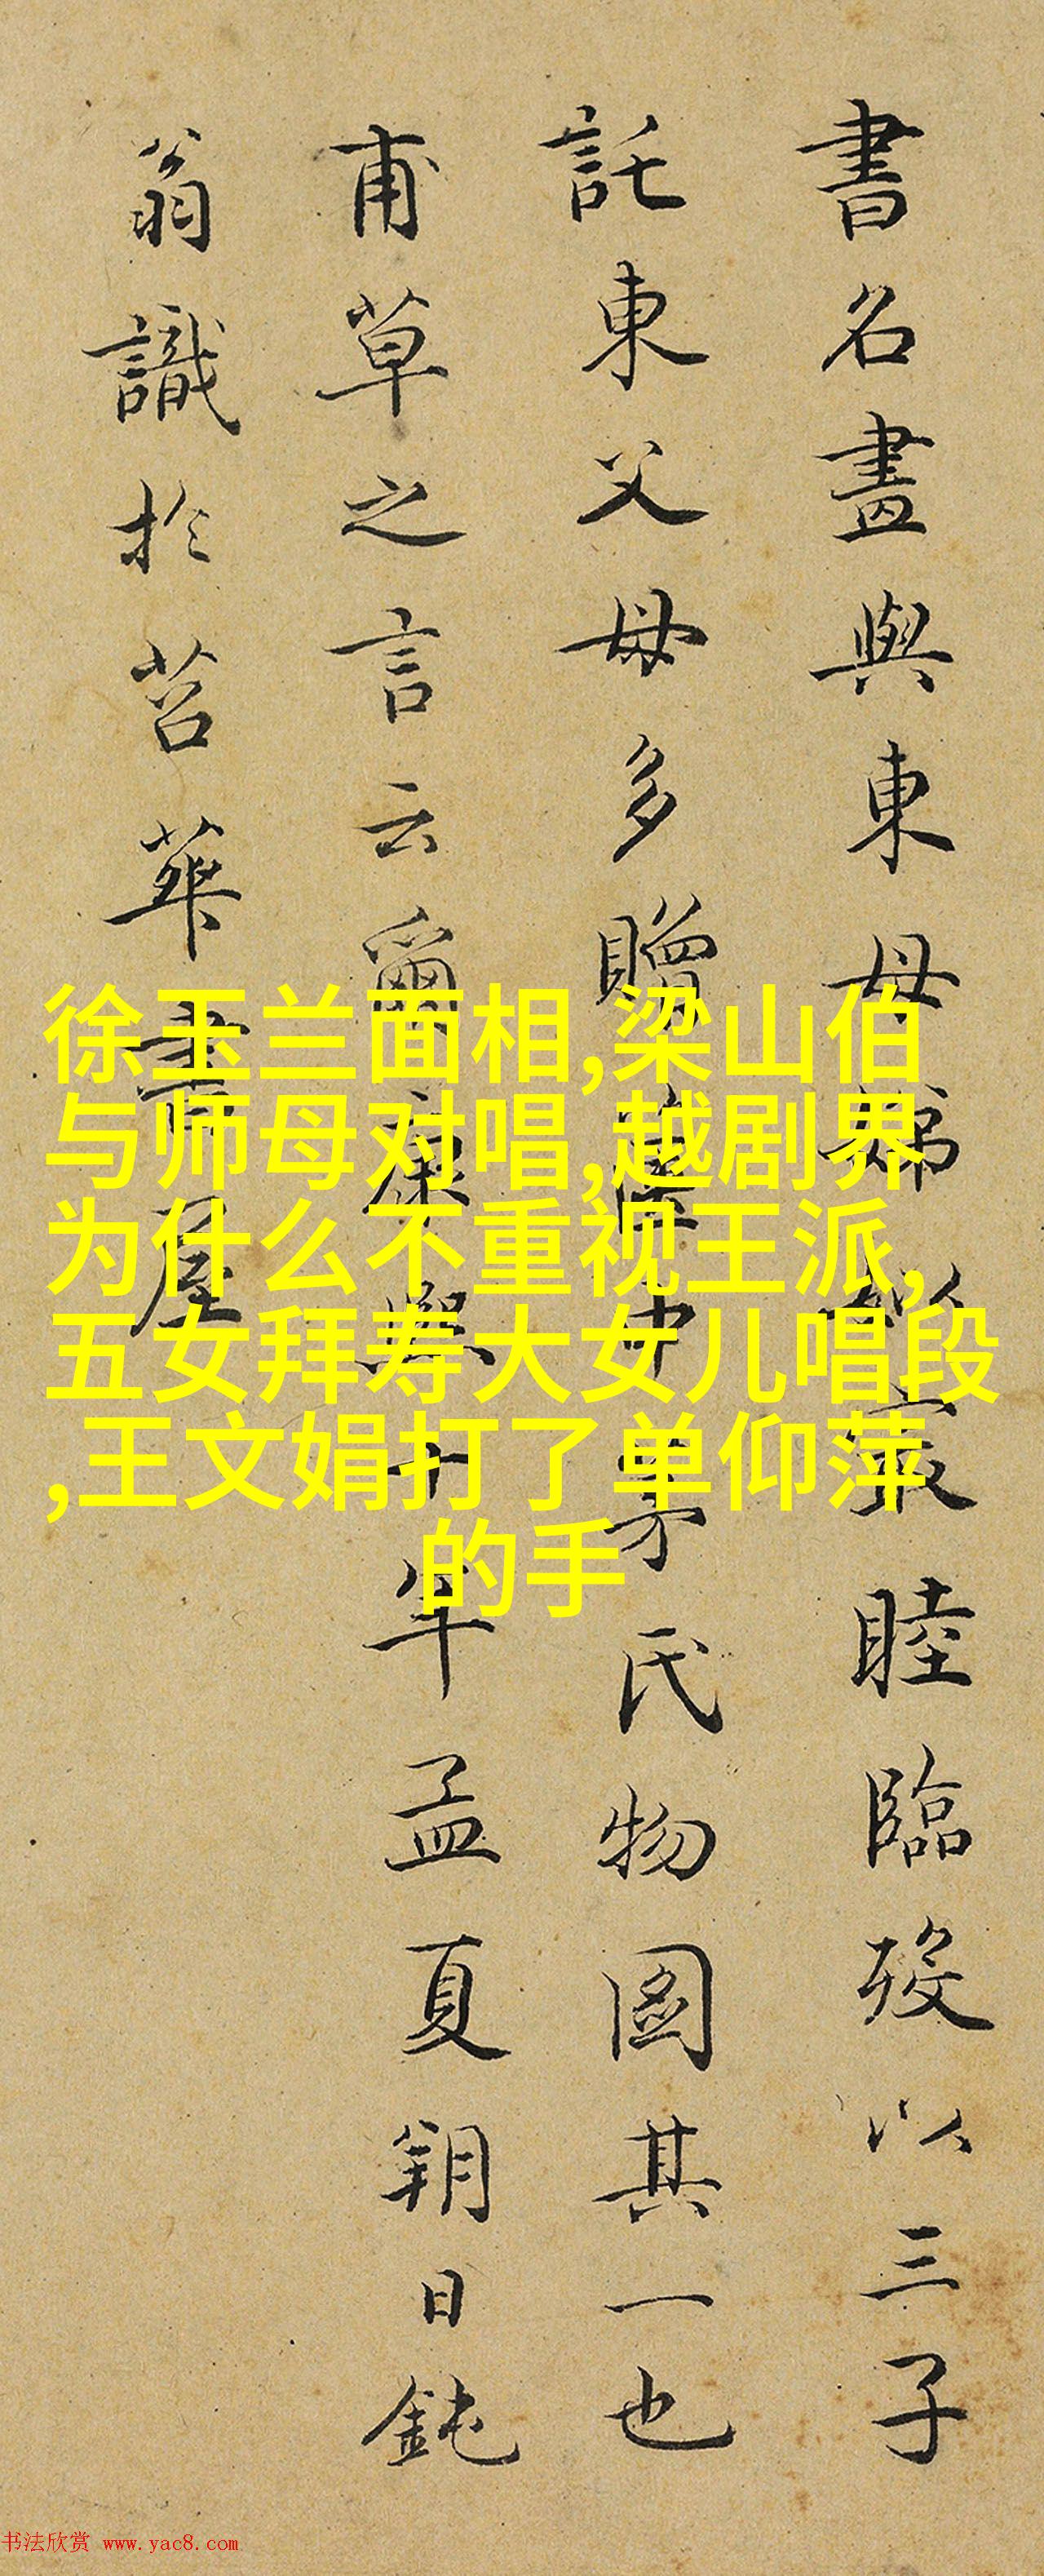 書名畫與東母姊最睦臨歿以三子
託東父母多贈中茅氏物圖其一也
甫草之言云爾康熙十年孟夏朔日鈍
翁識於苕華書屋
徐玉兰面相,梁山伯
与师母对唱,越剧界
为什么不重视王派,
五女拜寿大女儿唱段
,王文娟打了单仰萍
的手
书法欣赏 www.yac8.com